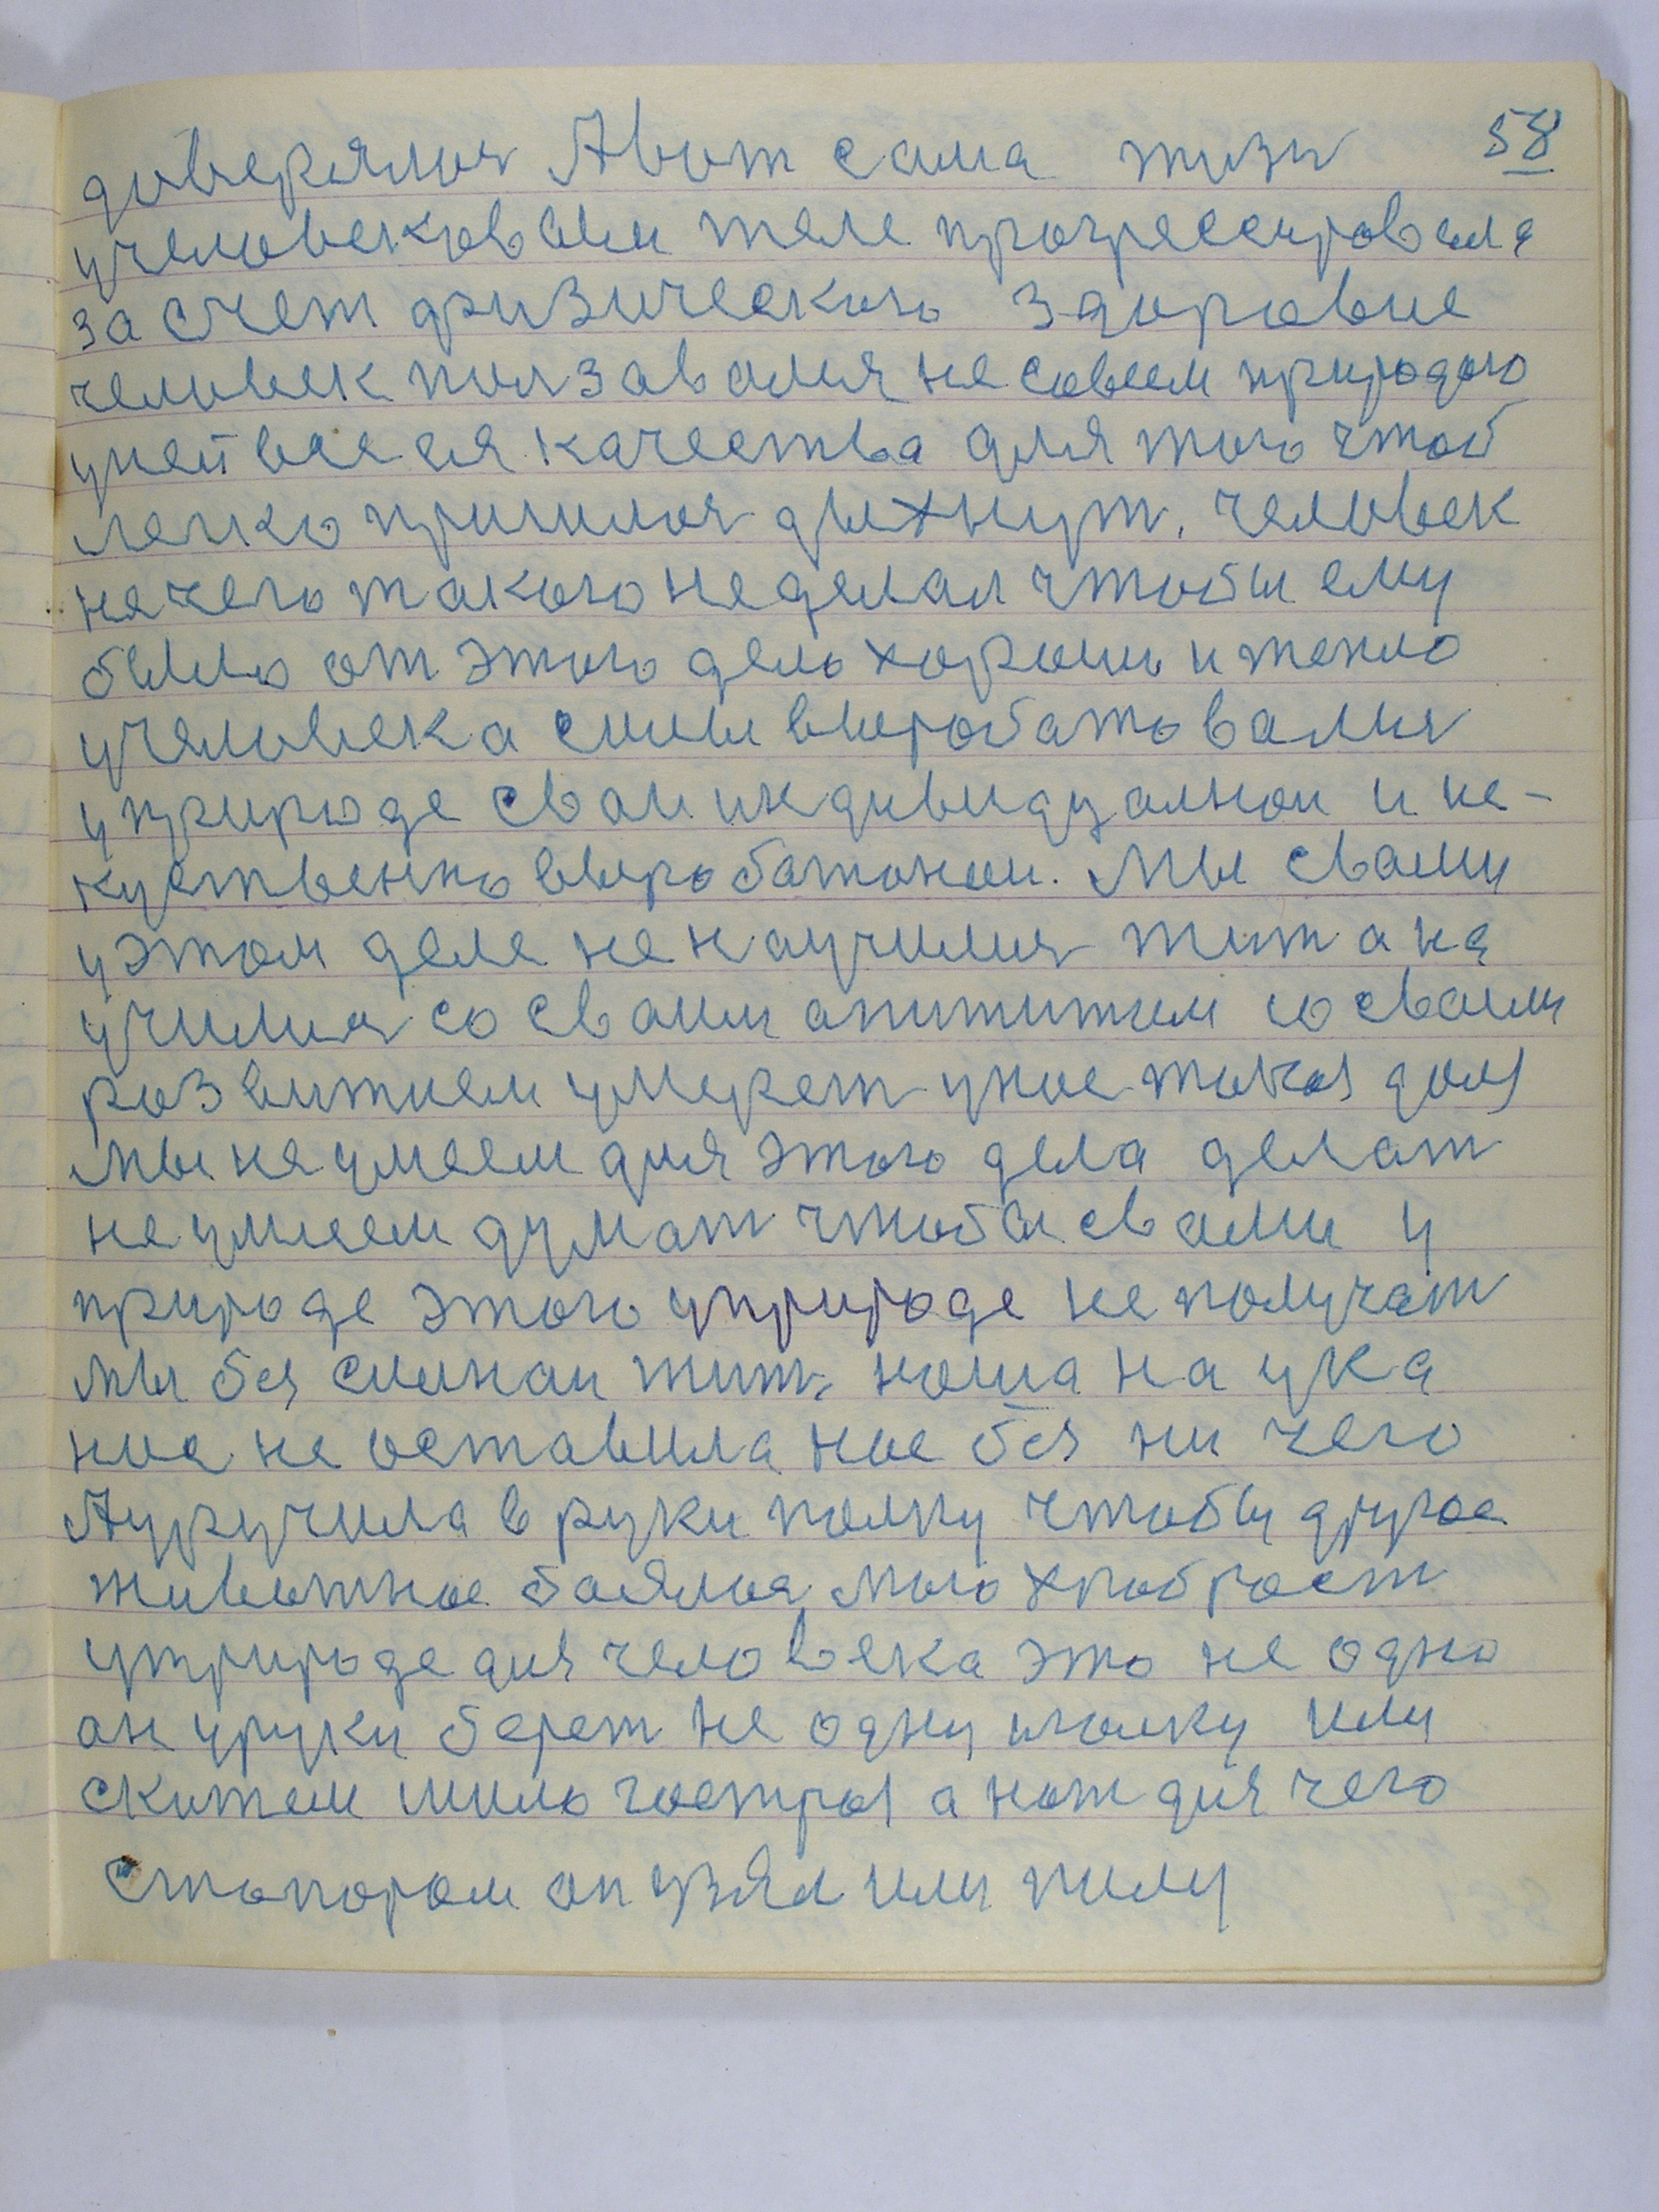 58
доверялся Авот сама жизн
учеловековом теле прогрессировала
за счет физического здоровие
человек ползавался не совсем природою
уней все ея качества для того чтоб
легко пришлося дыхнут. человек
нечего такого неделал чтобы ему
было от этого дело хорошо и тепло
учеловека силы выробатовалися
уприроде сваи индивидуалнои и ис-
куственно выробатонои. Мы свами
уэтом деле не научилися жит а на
учился со сваим апититем со сваим
розвитием умерет унос такая доля
мы не умеем для этого дела делат
не умеем думат чтобы свами у
природе этого уприроде не получат
мы бея силнаи жит. ноша наука
нос не оставила нос бея ни чего
Ауручила в руки полку чтобы другое
животное боялося мого хроброст
уприроде для человека это не одно
он уруки берет не одну иголку или
скитем шило гострыя а нож для чего
стопором он узял или пилу